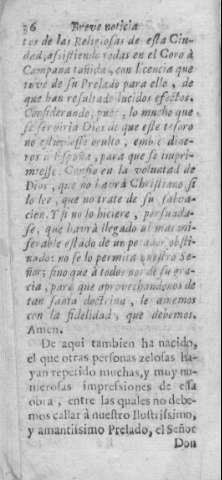 36 Breve noticia
tos de las Religiosas de esta Ciu-
dad, assistiendo todas en el Coro à
Campana tañida, con licencia que
tuve de su Prelado para ello, de
que han resultado lucidos efectos.
Considerando, pues, lo mucho que
se serviria Dios de que este tesoro
no estuviesse oculto, embiè dine-
ros à España, para que se impri-
miesse. Confio en la voluntad de
Dios, que no havrà Christiano si
lo lee, que no trate de su salva-
cion. Y si no lo hiciere, persuada-
se, que havrà llegado al mas mi-
serable estado de un pecador obsti-
nado: no se lo permita nuestro Se-
ñor; sino que à todos nos dè su gra-
cia, para que aprovechandonos de
tan santa doctrina, le amemos
con la fidelidad, que debemos.
Amen.
De aqui tambien ha nacido,
el que otras personas zelosas ha-
yan repetido muchas, y muy nu-
merosas impressiones de essa
obra, entre las quales no debe-
mos callar à nuestro Ilustrissimo,
y amantissimo Prelado, el Señor
Don